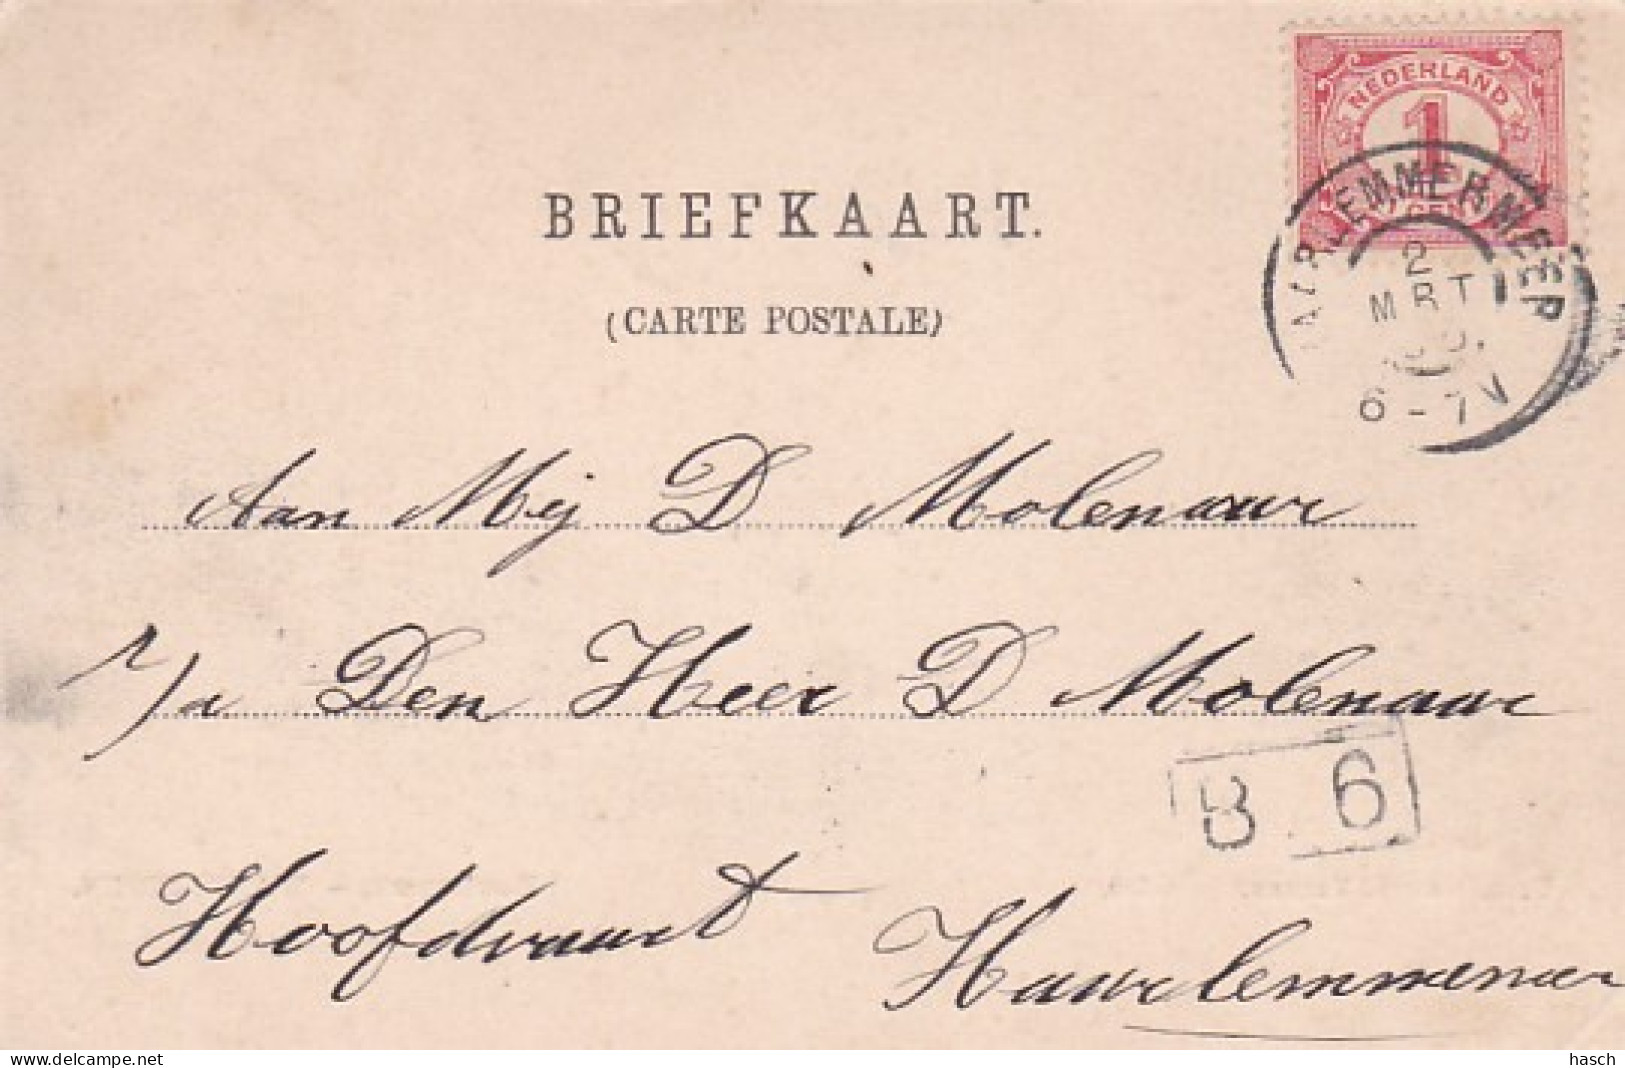 NEDERLAND
1
CENT
HAARLEMMERMEER
2
MRT
6-7V
BRIEFKAART.
(CARTE POSTALE)
Aan Mej D Molenaar
p/a Den Heer D Molenaar
B 6
Hoofdvaart Haarlemmermeer
www.delcampe.net
hasch